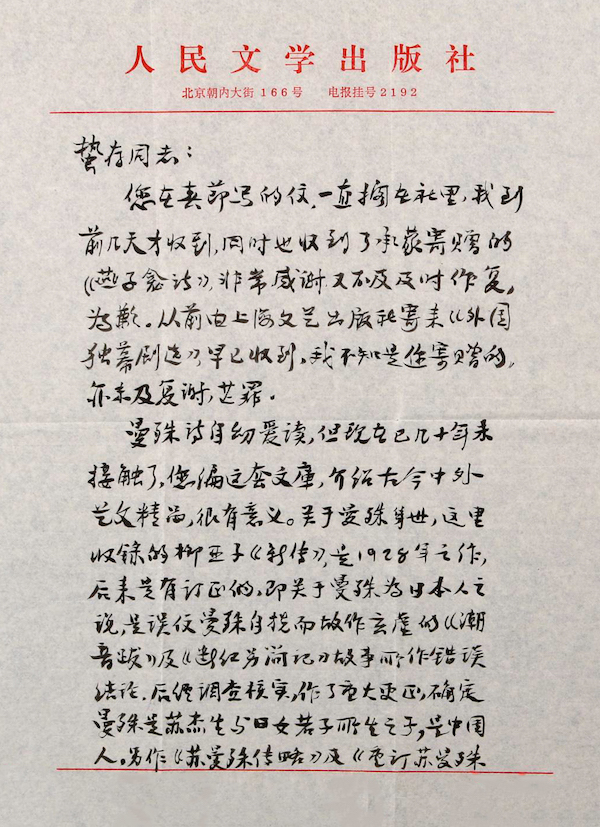 人民文学出版社
北京朝内大街166号 电报挂号2192
蛰存同志：
您在春节写的信，一直搁在社里，我到
前几天才收到，同时也收到了承蒙寄赠的
《燕子龛诗》，非常感谢。又不及及时作复，
为歉。从前由上海文艺出版社寄来《外国
独幕剧选》，早已收到，我不知是您寄赠的，
亦未及复谢，芒罪。
曼殊诗自幼爱读，但现在已几十年未
接触了，您编这套文库，介绍古今中外
艺文精品，很有意义。关于曼殊身世，这里
收录的柳亚子《新传》，是1928年之作，
后来是有订正的，即关于曼殊为日本人之
说，是误信曼殊自撰而故作玄虚的《潮
音跋》及《断鸿另简记》故事所作错误
结论。后经调查核实，作了重大更正，确定
曼殊是苏杰生与日女若子所生之子，是中国
人。另作《苏曼殊传略》及《重订苏曼殊